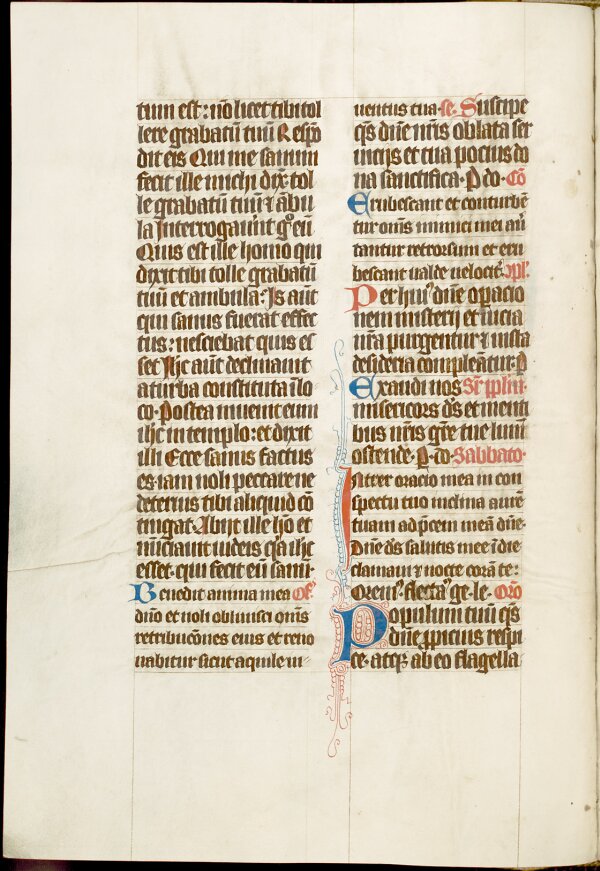 tum est: nō licet tibi tol
lere grabatū tuū Respō
dit eis Qui me sanum
fecit ille michi dix̄: tol
le grabatū tuū ⁊ ābu
la Interrogauūt gͦ eū
Quis est ille homo qui
dixit tibi tolle grabatū
tuū et ambula: Js aūt
qui sanus fuerat effec
tus: nesciebat quis es
set Hic aūt declinauit
a turba constituta ī lo
co. Postea inuenit eum
ihc̄ in templo: et dixit
illi Ecce sanus factus
es: iam noli peccare ne
deterius tibi aliquid cō
tingat. Abijt ille hō et
nūciauit iudeis qa ihc̄
esset. qui fecit eū sanū.
Benedic anima mea Of.
dn̄o et noli obliuisci om̄s
retribucōnes eius et reno
uabitur sicut aquile iu
uentus tua. se. Suscipe
qs̄ dn̄e nr̄is oblata ser
uicijs et tua pocius do
na sanctifica. P do. Cō
Erubescant et conturbē
tur om̄s inimici mei au
tantur retrorsum et eru
bescant ualde velocit̄. Opl.
Per huiꝰ dn̄e opacio
nem misterij et uicia
nr̄a purgentur ⁊ iusta
desideria compleātur. P
Exaudi nos Sr̄ pplm.
misericors ds̄ et menti
bus nr̄is gr̄e tue lumē
ostende. P. do. Sabbato.
Intret oracio mea in con
spectu tuo inclina aurē
tuam ad p̄cem meā dn̄e.
Dn̄e ds̄ salutis mee ī die
clamaui ⁊ nocte corā te:
Oremꝰ. flectaꝰ ge. le. Oro
Populum tuū qs̄
dn̄e ppicius respi
ce. atqꝫ ab eo flagella